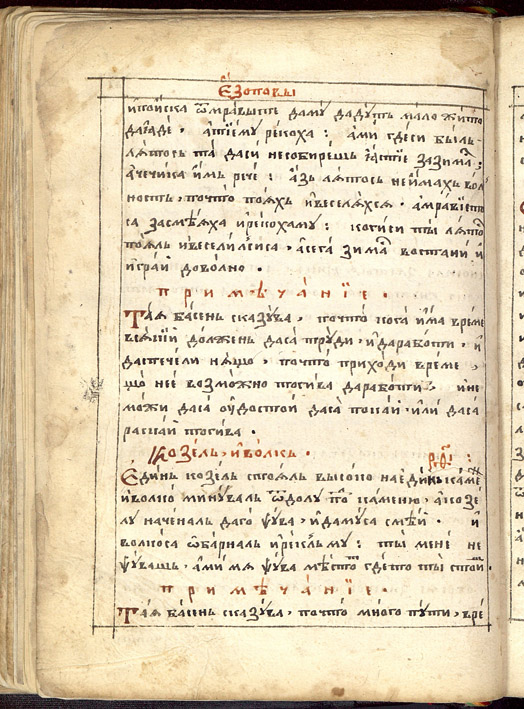 Езоповы
ипоиска ѿмравыте даму дадутъ мало жито
дагаде, атїему рекоха : ами гдеси былъ
лятось та даси несобирешь ꙗстїе зазима :
ачечика имъ рече : азъ лятось неймахъ вол
ность, почто пояхъ ивеселяхся, амравїете
са засмѣяха ирекохаму : когиси ты лято
поялъ ивеселилсиса, асега зима востани и
играй доволно .
примѣчанїе .
Тая басень сказува, почто кога има време
всякїй должень даса труди, идаработи, и
даспечели нящо, почто приходи време,
що нее возможно тогива даработи, ине
можи даса удостой даса покай или даса
раскай тогива .
Козель, иволкъ . рѳ :
Единъ козель стоялъ высоко наединъ каме
иволко минувалъ ѿдолу по каменю, акозе
лу наченалъ даго ѱува, идамуса смѣй . и
волкоса ѡбарналъ иреклъму : ты мене не
ѱувашъ, ами мя ѱува мѣсто гдето ты стой .
примѣчанїе .
Тая басень сказува, почто много пути, вре